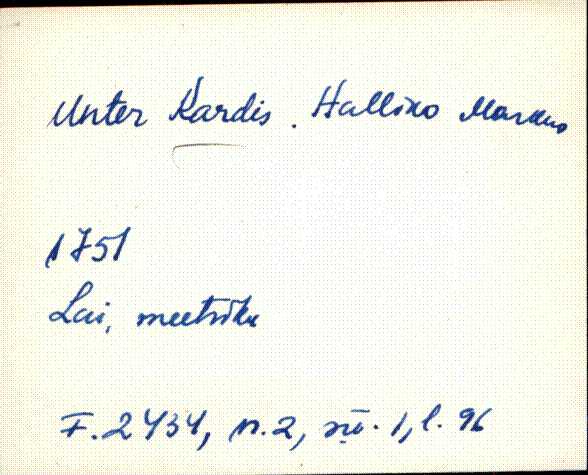 Unter Kardis. Hallixo Marcus
1751
Lai, meetrika
F. 2434, n. 2, sü. 1, l. 96